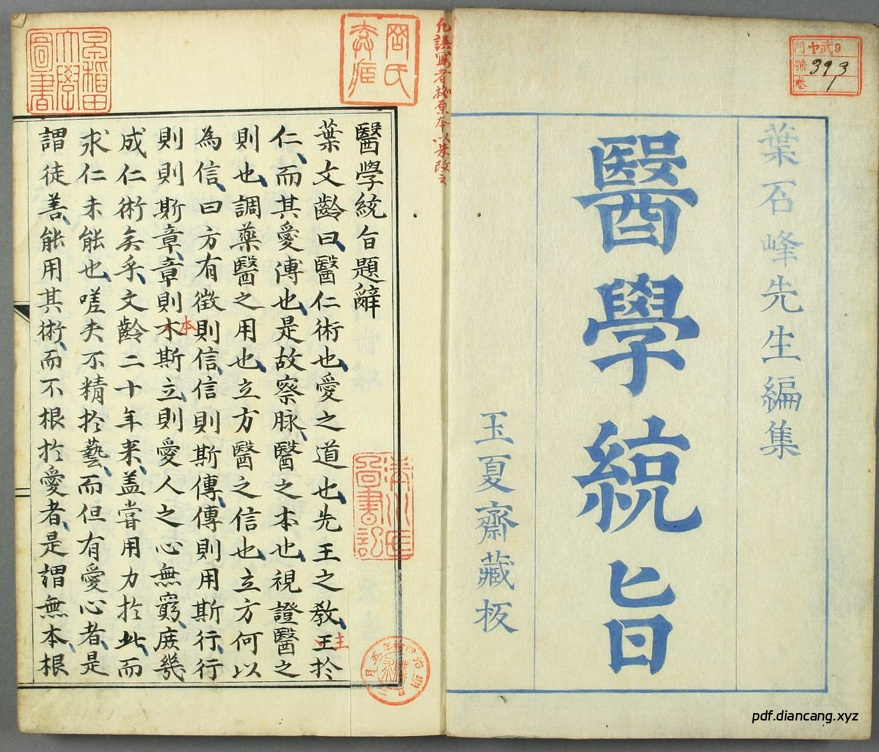 葉石峰先生編集
醫學統旨
玉夏齋藏板
393
1
凡誤寫者按原本以朱改之
醫學統旨題辭
葉文齡曰醫仁術也愛之道也先王之敎王於
主
仁而其愛溥也是故察脉醫之本也視證醫之
則也調藥醫之用也立方醫之信也立方何以
為信曰方有徵則信信則斯傳傳則用斯行行
則則斯章章則不斯立則愛人之心無窮庻幾
本
成仁術矣乎文齡二十年來盖嘗用力於此而
求仁未能也嗟夫不精於藝而但有愛心者是
謂徒善能用其術而不根於愛者是謂無本根
早稲田大學圖書
圖書記
pdf.diancang.xyz